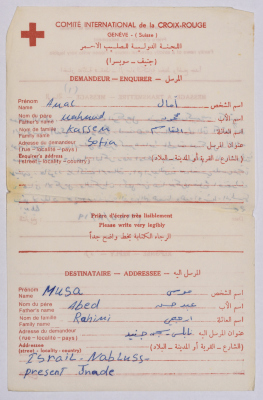 COMITÉ INTERNATIONAL de la CROIX-ROUGE
GENÈVE - (Suisse)
اللجنة الدولية للصليب الأحمر
(جنيف - سويسرا)
DEMANDEUR — ENQUIRER — المرسل
Prénom
Name
Amal
آمال
اسم الشخص
Nom du père
Father's name
mahmud
محمود
اسم الأب
Nom de famille
Family name
Kassem
اسم العائلة
Adresse du demandeur
(rue - localité - pays)
Sofia
عنوان المرسل
Enquirer's address
(street - locality - country)
(الشارع - القرية أو المدينة - البلاد)
Prière d'écrire très lisiblement
Please write very legibly
الرجاء الكتابة بخط واضح جداً
DESTINATAIRE — ADDRESSEE — المرسل اليه
Prénom
Name
Musa
موسى
اسم الشخص
Nom du père
Father's name
Abed
اسم الأب
Nom de famille
Family name
Rahimi
اسم العائلة
Adresse du demandeur
(rue - localité - pays)
نابلس
عنوان المرسل اليه
Addressee
(street - locality - country)
(الشارع - القرية أو المدينة - البلاد)
Israil - Nabluss-
present Jnade